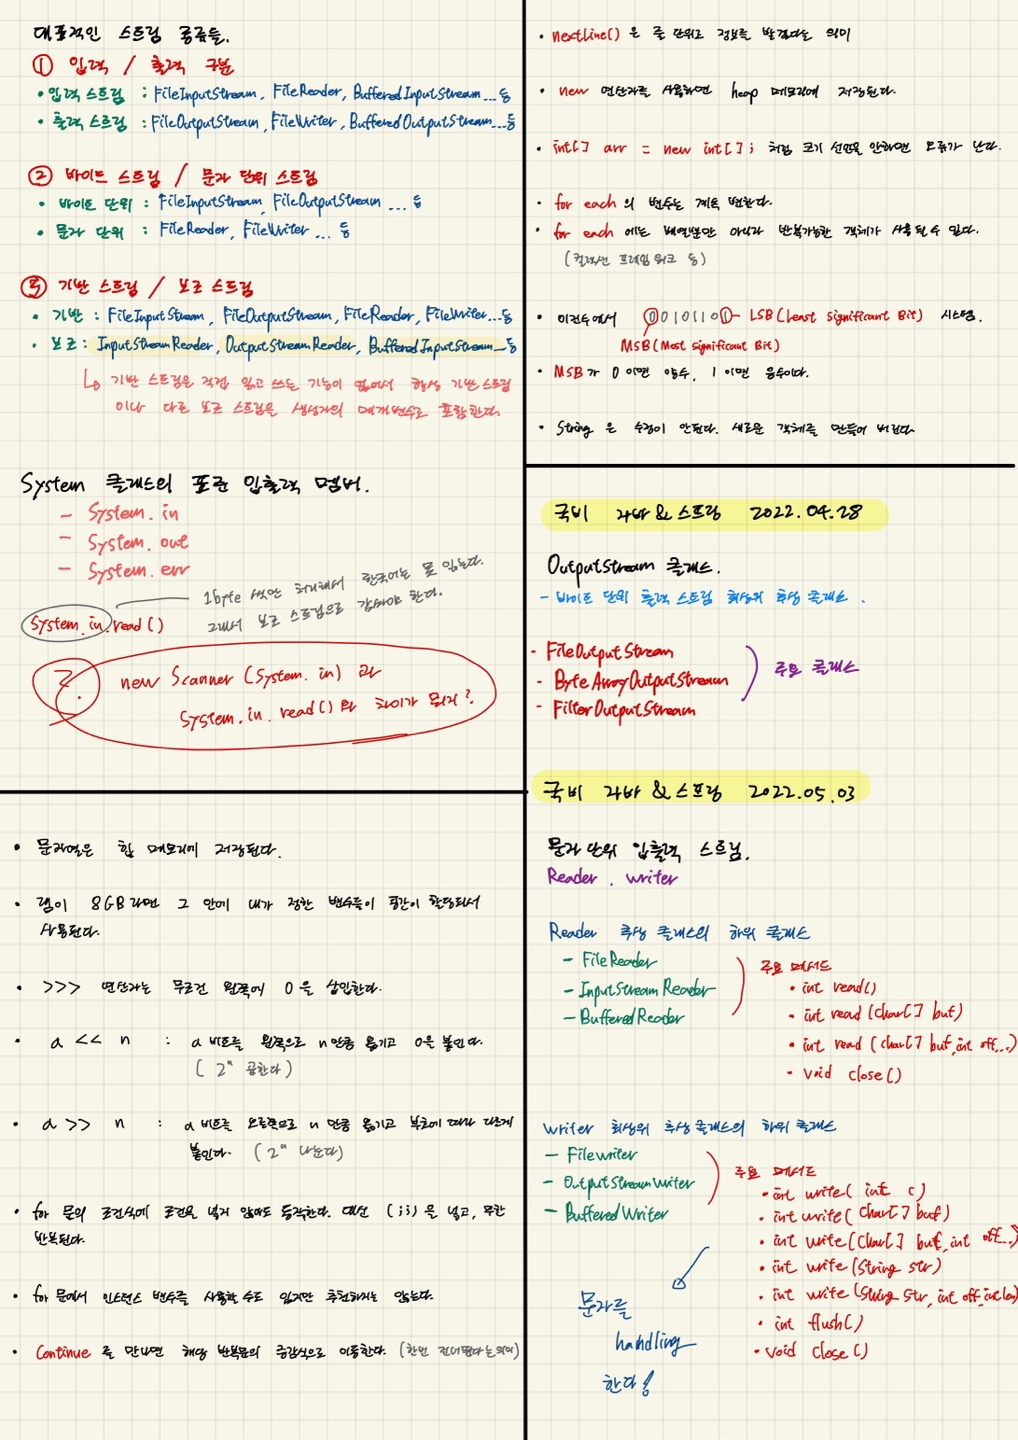 대표적인 스트림 종류들.
① 입력 / 출력 구분
• 입력 스트림 : FileInputStream, FileReader, BufferedInputStream... 등
• 출력 스트림 : FileOutputStream, FileWriter, BufferedOutputStream... 등
② 바이트 스트림 / 문자 단위 스트림
• 바이트 단위 : FileInputStream, FileOutputStream ... 등
• 문자 단위 : FileReader, FileWriter ... 등
③ 기반 스트림 / 보조 스트림
• 기반 : FileInputStream, FileOutputStream, FileReader, FileWriter... 등
• 보조 : InputStreamReader, OutputStreamReader, BufferedInputStream... 등
↳ 기반 스트림은 직접 읽고 쓰는 기능이 없어서 항상 기반 스트림
이나 다른 보조 스트림을 생성자의 매개변수로 포함한다.
System 클래스의 표준 입출력 멤버.
- System.in
- System.out
- System.err
1byte 씩만 처리해서 한국어는 못 읽는다.
그래서 보조 스트림으로 감싸야 한다.
System.in.read()
?. new Scanner (System.in) 과
System.in.read() 와 차이가 뭐지?
• 문자열은 힙 메모리에 저장된다.
• 램이 8GB라면 그 안에 내가 정한 변수들이 공간이 할당되서
사용된다.
• >>> 연산자는 무조건 왼쪽에 0을 삽입한다.
• a << n : a 비트를 왼쪽으로 n만큼 옮기고 0을 붙인다.
( 2ⁿ 곱한다 )
• a >> n : a 비트를 오른쪽으로 n 만큼 옮기고 부호에 따라 다르게
붙인다. ( 2ⁿ 나눈다)
• for 문의 조건식에 조건을 넣지 않아도 동작한다. 대신 (;;)을 넣고, 무한
반복된다.
• for 문에서 인스턴스 변수를 사용할 수도 있지만 추천하지는 않는다.
• Continue 를 만나면 해당 반복문의 증감식으로 이동한다. (한번 건너뛴다는 의미)
• nextLine() 은 줄 단위로 정보를 받겠다는 의미
• new 연산자를 사용하면 heap 메모리에 저장된다.
• int[] arr = new int[]; 처럼 크기 선언을 안하면 오류가 난다.
• for each 의 변수는 계속 변한다.
• for each 에는 배열뿐만 아니라 반복가능한 객체가 사용될 수 있다.
(컬렉션 프레임 워크 등)
• 이진수에서 00101101 - LSB (Least Significant Bit) 시스템.
MSB (Most significant Bit)
• MSB가 0 이면 양수, 1 이면 음수이다.
• String 은 수정이 안된다. 새로운 객체를 만들어 버린다
국비 자바 & 스프링 2022.04.28
OutputStream 클래스.
- 바이트 단위 출력 스트림 최상위 추상 클래스.
- FileOutputStream
- ByteArrayOutputStream
- FilterOutputStream
주요 클래스
국비 자바 & 스프링 2022.05.03
문자 단위 입출력 스트림.
Reader . writer
Reader 추상 클래스의 하위 클래스
- FileReader
- InputStreamReader
- BufferedReader
주요 메서드
• int read()
• int read (char[] buf)
• int read (char[] buf, int off...)
• void close()
writer 최상위 추상 클래스의 하위 클래스
- Filewriter
- OutputStreamWriter
- BufferedWriter
주요 메서드
• int write( int c)
• int write( char[] buf)
• int write (char[] buf, int off...)
• int write (String str)
• int write (String str, int off, int len)
• int flush()
• void close()
문자를
handling
한다!